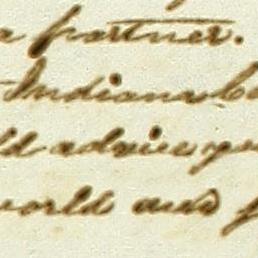 a partner.
Indiana
ld advice
world and